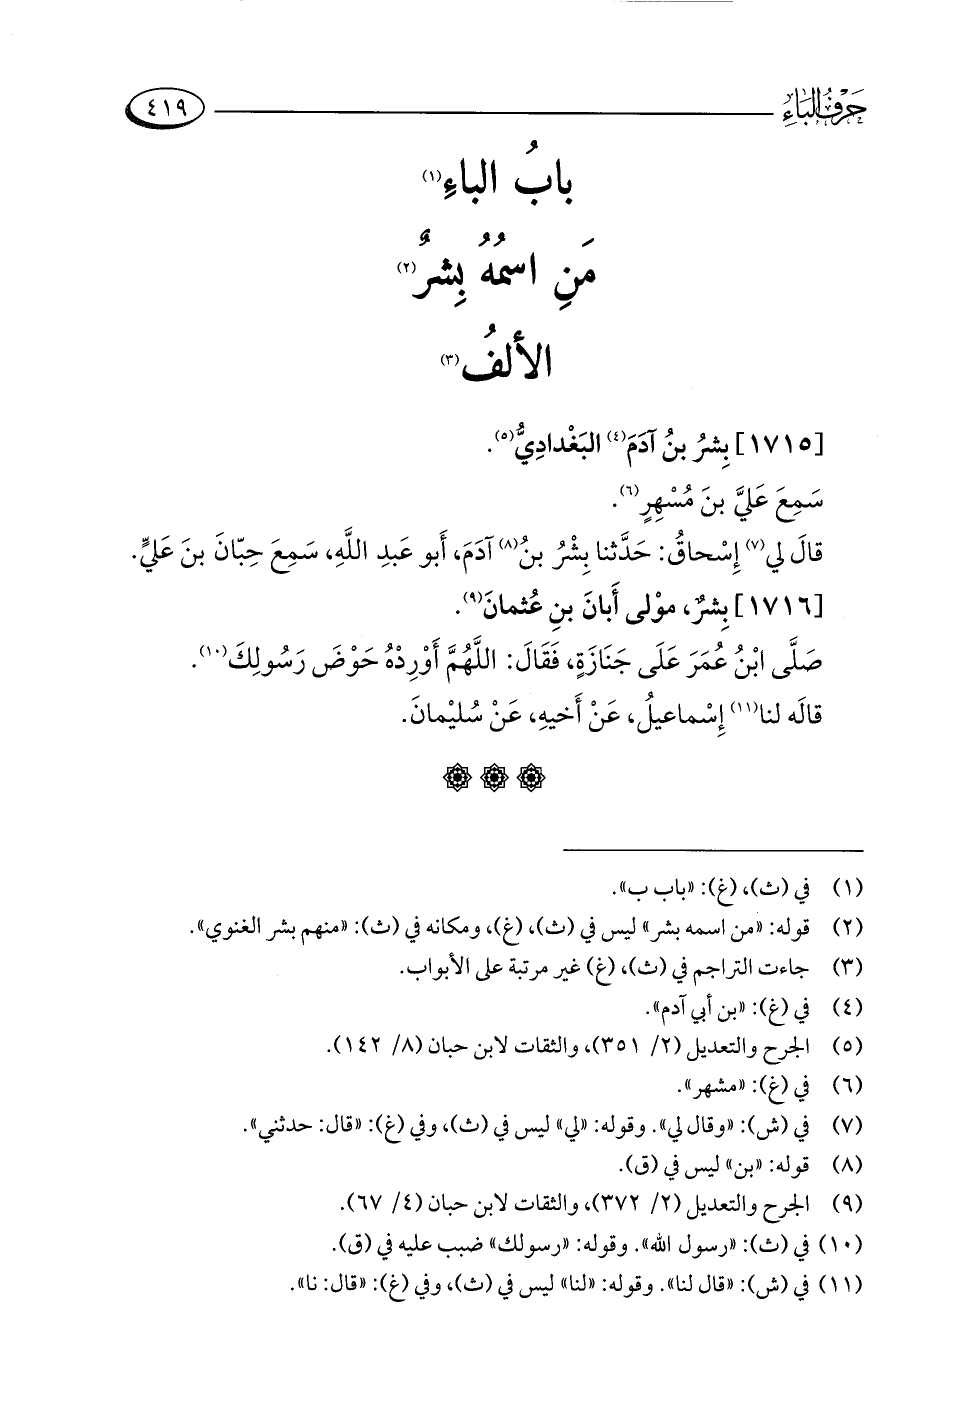 حَرْفُ البَاءِ
٤١٩
بابُ الباءِ(١)
مَنِ اسمُهُ بِشرٌ(٢)
الألفُ(٣)
[١٧١٥] بِشرُ بنُ آدَمَ(٤) البَغْدادِيُّ(٥).
سَمِعَ عَلِيَّ بنَ مُسْهِرٍ(٦).
قالَ لي(٧) إِسْحاقُ: حَدَّثنا بِشْرُ بنُ(٨) آدَمَ، أَبو عَبدِ اللَّهِ، سَمِعَ حِبّانَ بنَ عَلِيٍّ.
[١٧١٦] بِشرٌ، مولى أَبانَ بنِ عُثمانَ(٩).
صَلَّى ابْنُ عُمَرَ عَلَى جَنَازَةٍ، فَقَالَ: اللَّهُمَّ أَوْرِدْهُ حَوْضَ رَسُولِكَ(١٠).
قالَه لنا(١١) إِسْماعيلُ، عَنْ أَخيهِ، عَنْ سُليْمانَ.
(١) في (ث)، (غ): «باب ب».
(٢) قوله: «من اسمه بشر» ليس في (ث)، (غ)، ومكانه في (ث): «منهم بشر الغنوي».
(٣) جاءت التراجم في (ث)، (غ) غير مرتبة على الأبواب.
(٤) في (غ): «بن أبي آدم».
(٥) الجرح والتعديل (٢/ ٣٥١)، والثقات لابن حبان (٨/ ١٤٢).
(٦) في (غ): «مشهر».
(٧) في (ش): «وقال لي». وقوله: «لي» ليس في (ث)، وفي (غ): «قال: حدثني».
(٨) قوله: «بن» ليس في (ق).
(٩) الجرح والتعديل (٢/ ٣٧٢)، والثقات لابن حبان (٤/ ٦٧).
(١٠) في (ث): «رسول الله». وقوله: «رسولك» ضبب عليه في (ق).
(١١) في (ش): «قال لنا». وقوله: «لنا» ليس في (ث)، وفي (غ): «قال: نا».